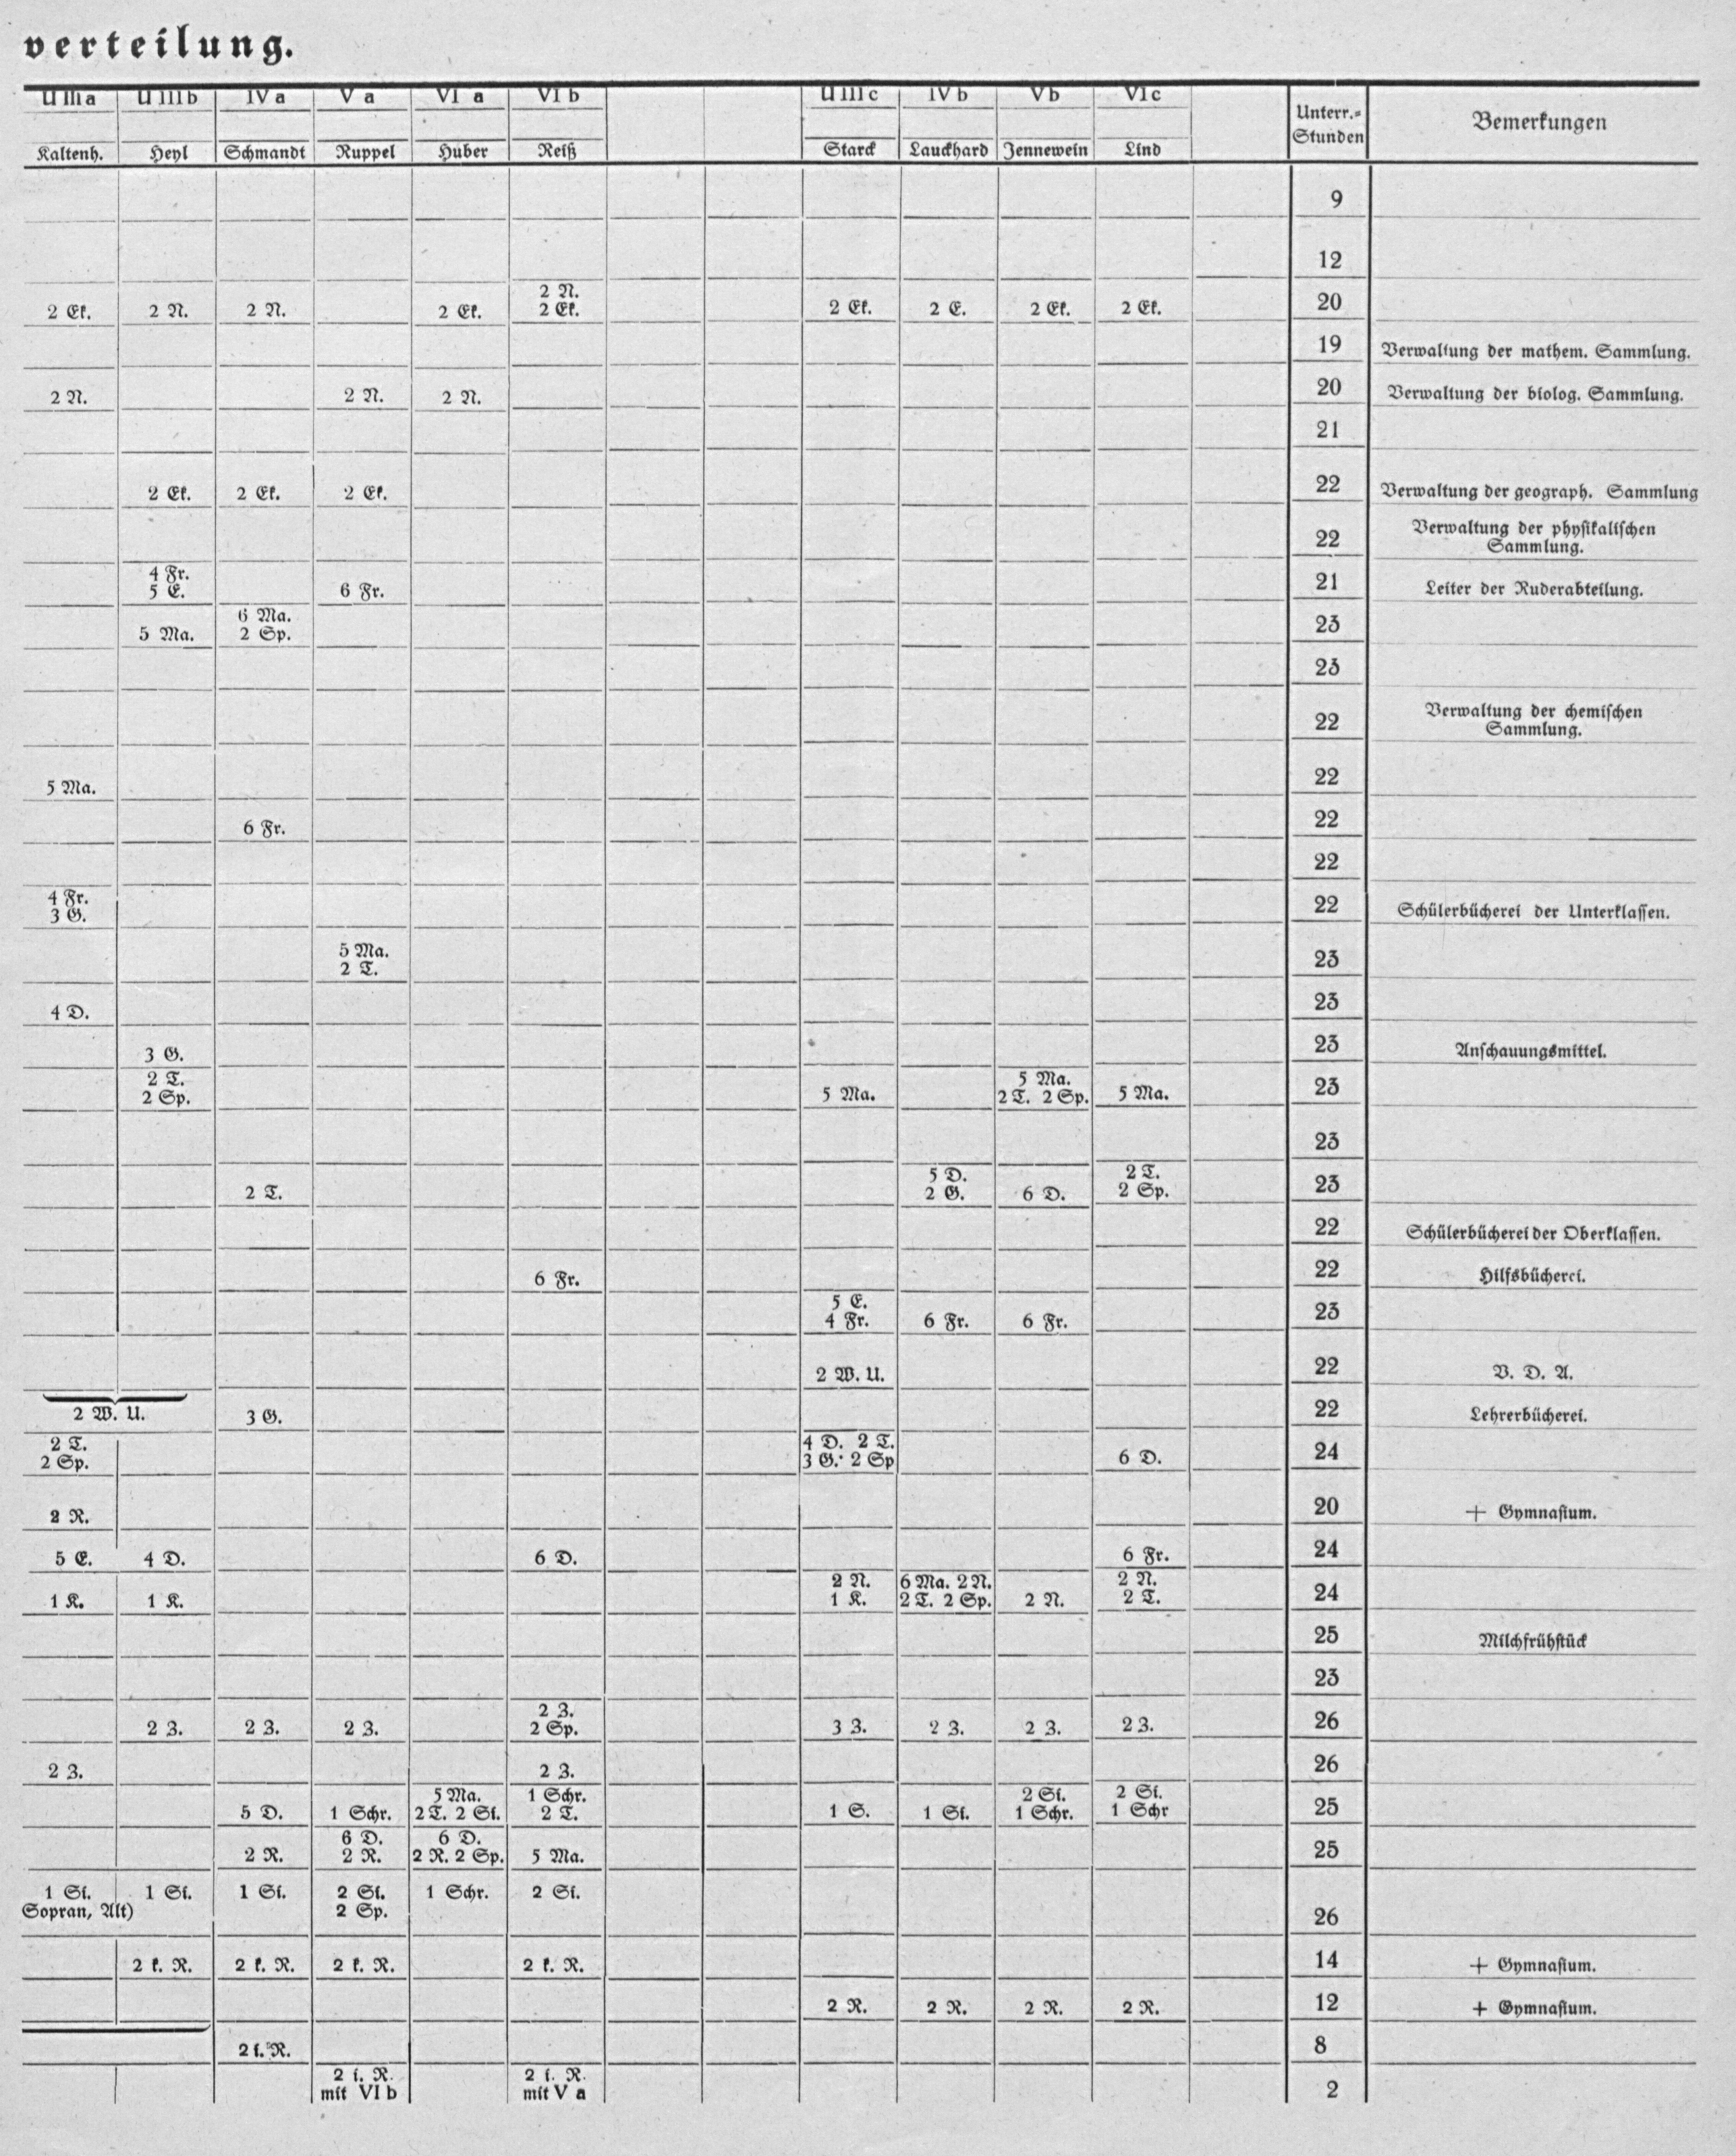 verteilung.
U III a U III b IV a V a VI a VI b U III c IV b V b VI c
Unterr.=
Stunden
Bemerkungen
Kaltenh. Heyl Schmandt Ruppel Huber Reiß Starck Lauckhard Jennewein Lind
9
12
2 N.
2 Ek. 2 N. 2 N. 2 Ek. 2 Ek. 2 Ek. 2 E. 2 Ek. 2 Ek. 20
19 Verwaltung der mathem. Sammlung.
2 N. 2 N. 2 N. 20 Verwaltung der biolog. Sammlung.
21
2 Ek. 2 Ek. 2 Ek. 22 Verwaltung der geograph. Sammlung
22 Verwaltung der physikalischen
Sammlung.
4 Fr.
5 E. 6 Fr. 21 Leiter der Ruderabteilung.
6 Ma.
5 Ma. 2 Sp. 23
23
22 Verwaltung der chemischen
Sammlung.
5 Ma. 22
6 Fr. 22
22
4 Fr.
3 G. 22 Schülerbücherei der Unterklassen.
5 Ma.
2 T. 23
4 D. 23
3 G. 23 Anschauungsmittel.
2 T. 5 Ma.
2 Sp. 5 Ma. 2 T. 2 Sp. 5 Ma. 23
23
5 D. 2 T.
2 T. 2 G. 6 D. 2 Sp. 23
22 Schülerbücherei der Oberklassen.
6 Fr. 22 Hilfsbücherei.
5 E.
4 Fr. 6 Fr. 6 Fr. 23
2 W. U. 22 V. D. A.
2 W. U. 3 G. 22 Lehrerbücherei.
2 T. 4 D. 2 T.
2 Sp. 3 G. 2 Sp 6 D. 24
2 R. 20 + Gymnasium.
5 E. 4 D. 6 D. 6 Fr. 24
2 N. 6 Ma. 2 N. 2 N.
1 K. 1 K. 1 K. 2 T. 2 Sp. 2 N. 2 T. 24
25 Milchfrühstück
23
2 Z.
2 Z. 2 Z. 2 Z. 2 Sp. 3 Z. 2 Z. 2 Z. 2 Z. 26
2 Z. 2 Z. 26
5 Ma. 1 Schr. 2 Si. 2 Si.
5 D. 1 Schr. 2 T. 2 Si. 2 T. 1 S. 1 Si. 1 Schr. 1 Schr 25
6 D. 6 D.
2 R. 2 R. 2 R. 2 Sp. 5 Ma. 25
1 Si. 1 Si. 1 Si. 2 Si. 1 Schr. 2 Si.
Sopran, Alt) 2 Sp. 26
2 k. R. 2 k. R. 2 k. R. 2 k. R. 14 + Gymnasium.
2 R. 2 R. 2 R. 2 R. 12 + Gymnasium.
2 i. R. 8
2 i. R. 2 i. R.
mit VI b mit V a 2